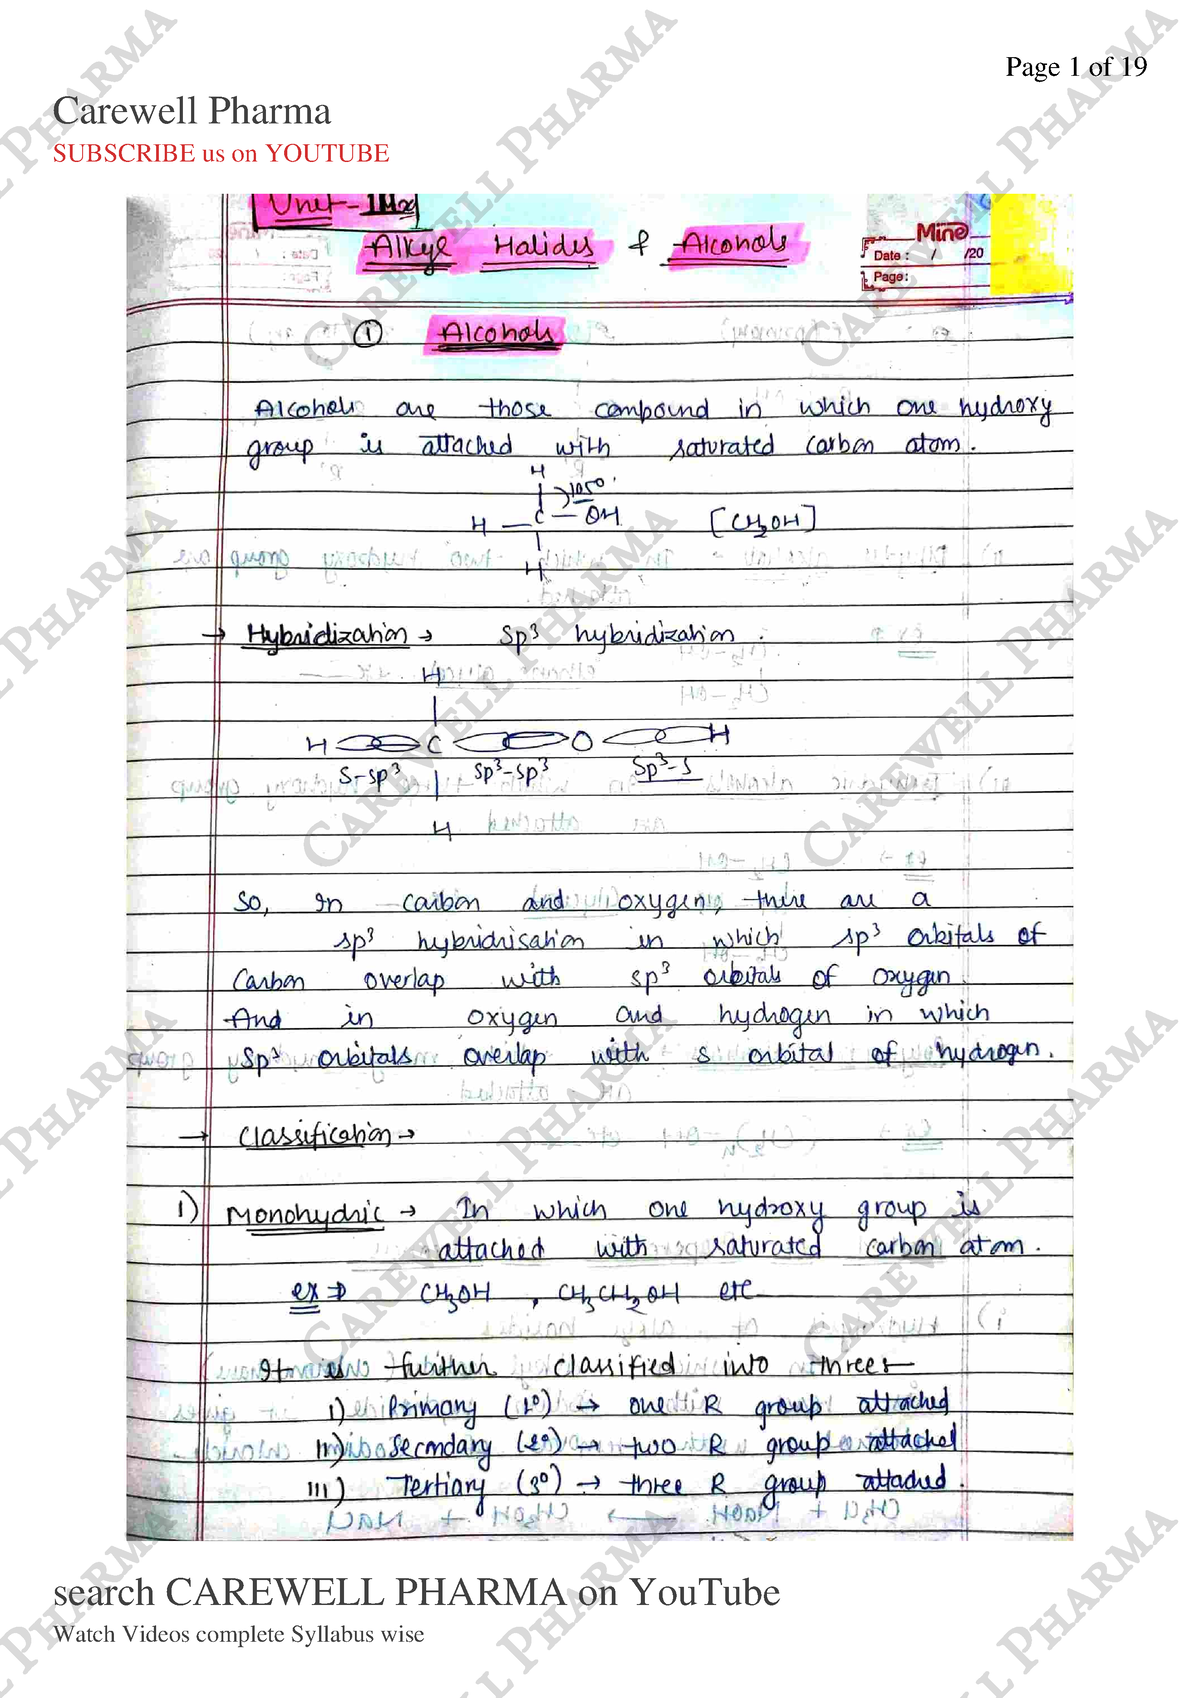 Page 1 of 19
Carewell Pharma
SUBSCRIBE us on YOUTUBE
Unit-III
Alkyl Halides & Alcohols
Mine
Date : / /20
Page:
① Alcohols
Alcohols are those compound in which one hydroxy
group is attached with saturated carbon atom.
H
105°
H — C — OH [CH3OH]
H
→ Hybridization → Sp³ hybridization.
H
H C O H
S-Sp³ Sp³-Sp³ Sp³-S
H
So, In carbon and oxygen, there are a
sp³ hybridrisation in which sp³ orbitals of
Carbon overlap with sp³ orbitals of oxygen.
And in oxygen and hydrogen in which
Sp³ orbitals overlap with s orbital of hydrogen.
→ Classification →
i) Monohydric → In which one hydroxy group is
attached with saturated carbon atom.
ex ⇒ CH3OH , CH3CH2OH etc
It is further classified into three →
i) Primary (1°) → one R group attached
ii) Secondary (2°) → two R group attached
iii) Tertiary (3°) → three R group attached.
search CAREWELL PHARMA on YouTube
Watch Videos complete Syllabus wise
CAREWELL PHARMA